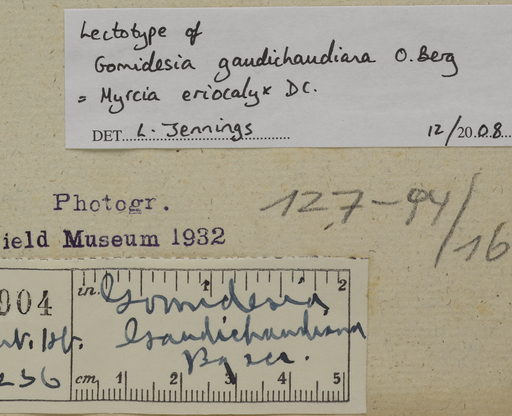 Lectotype of
Gomidesia gaudichaudiana O. Berg
= Myrcia eriocalyx DC.
DET. L. Jennings 12/2008
Photogr.
ield Museum 1932
127-94/16
904
in. 1 2
Gomidesia
Gaudichaudiana
236
cm. 1 2 3 4 5